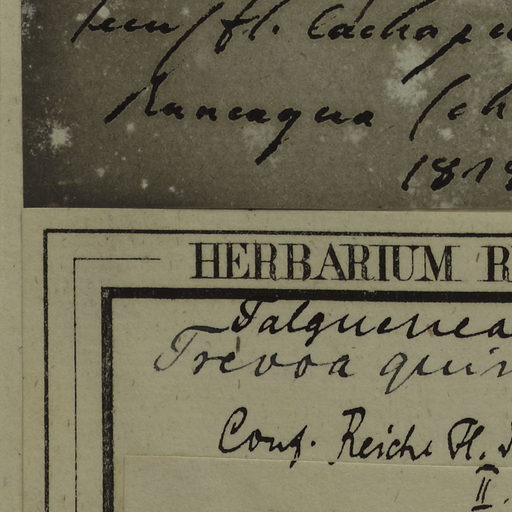 fl. Cachapu
Rancagua (Ch
1818
HERBARIUM R
Talguenea
Trevoa quin
Conf. Reiche Fl.
II.